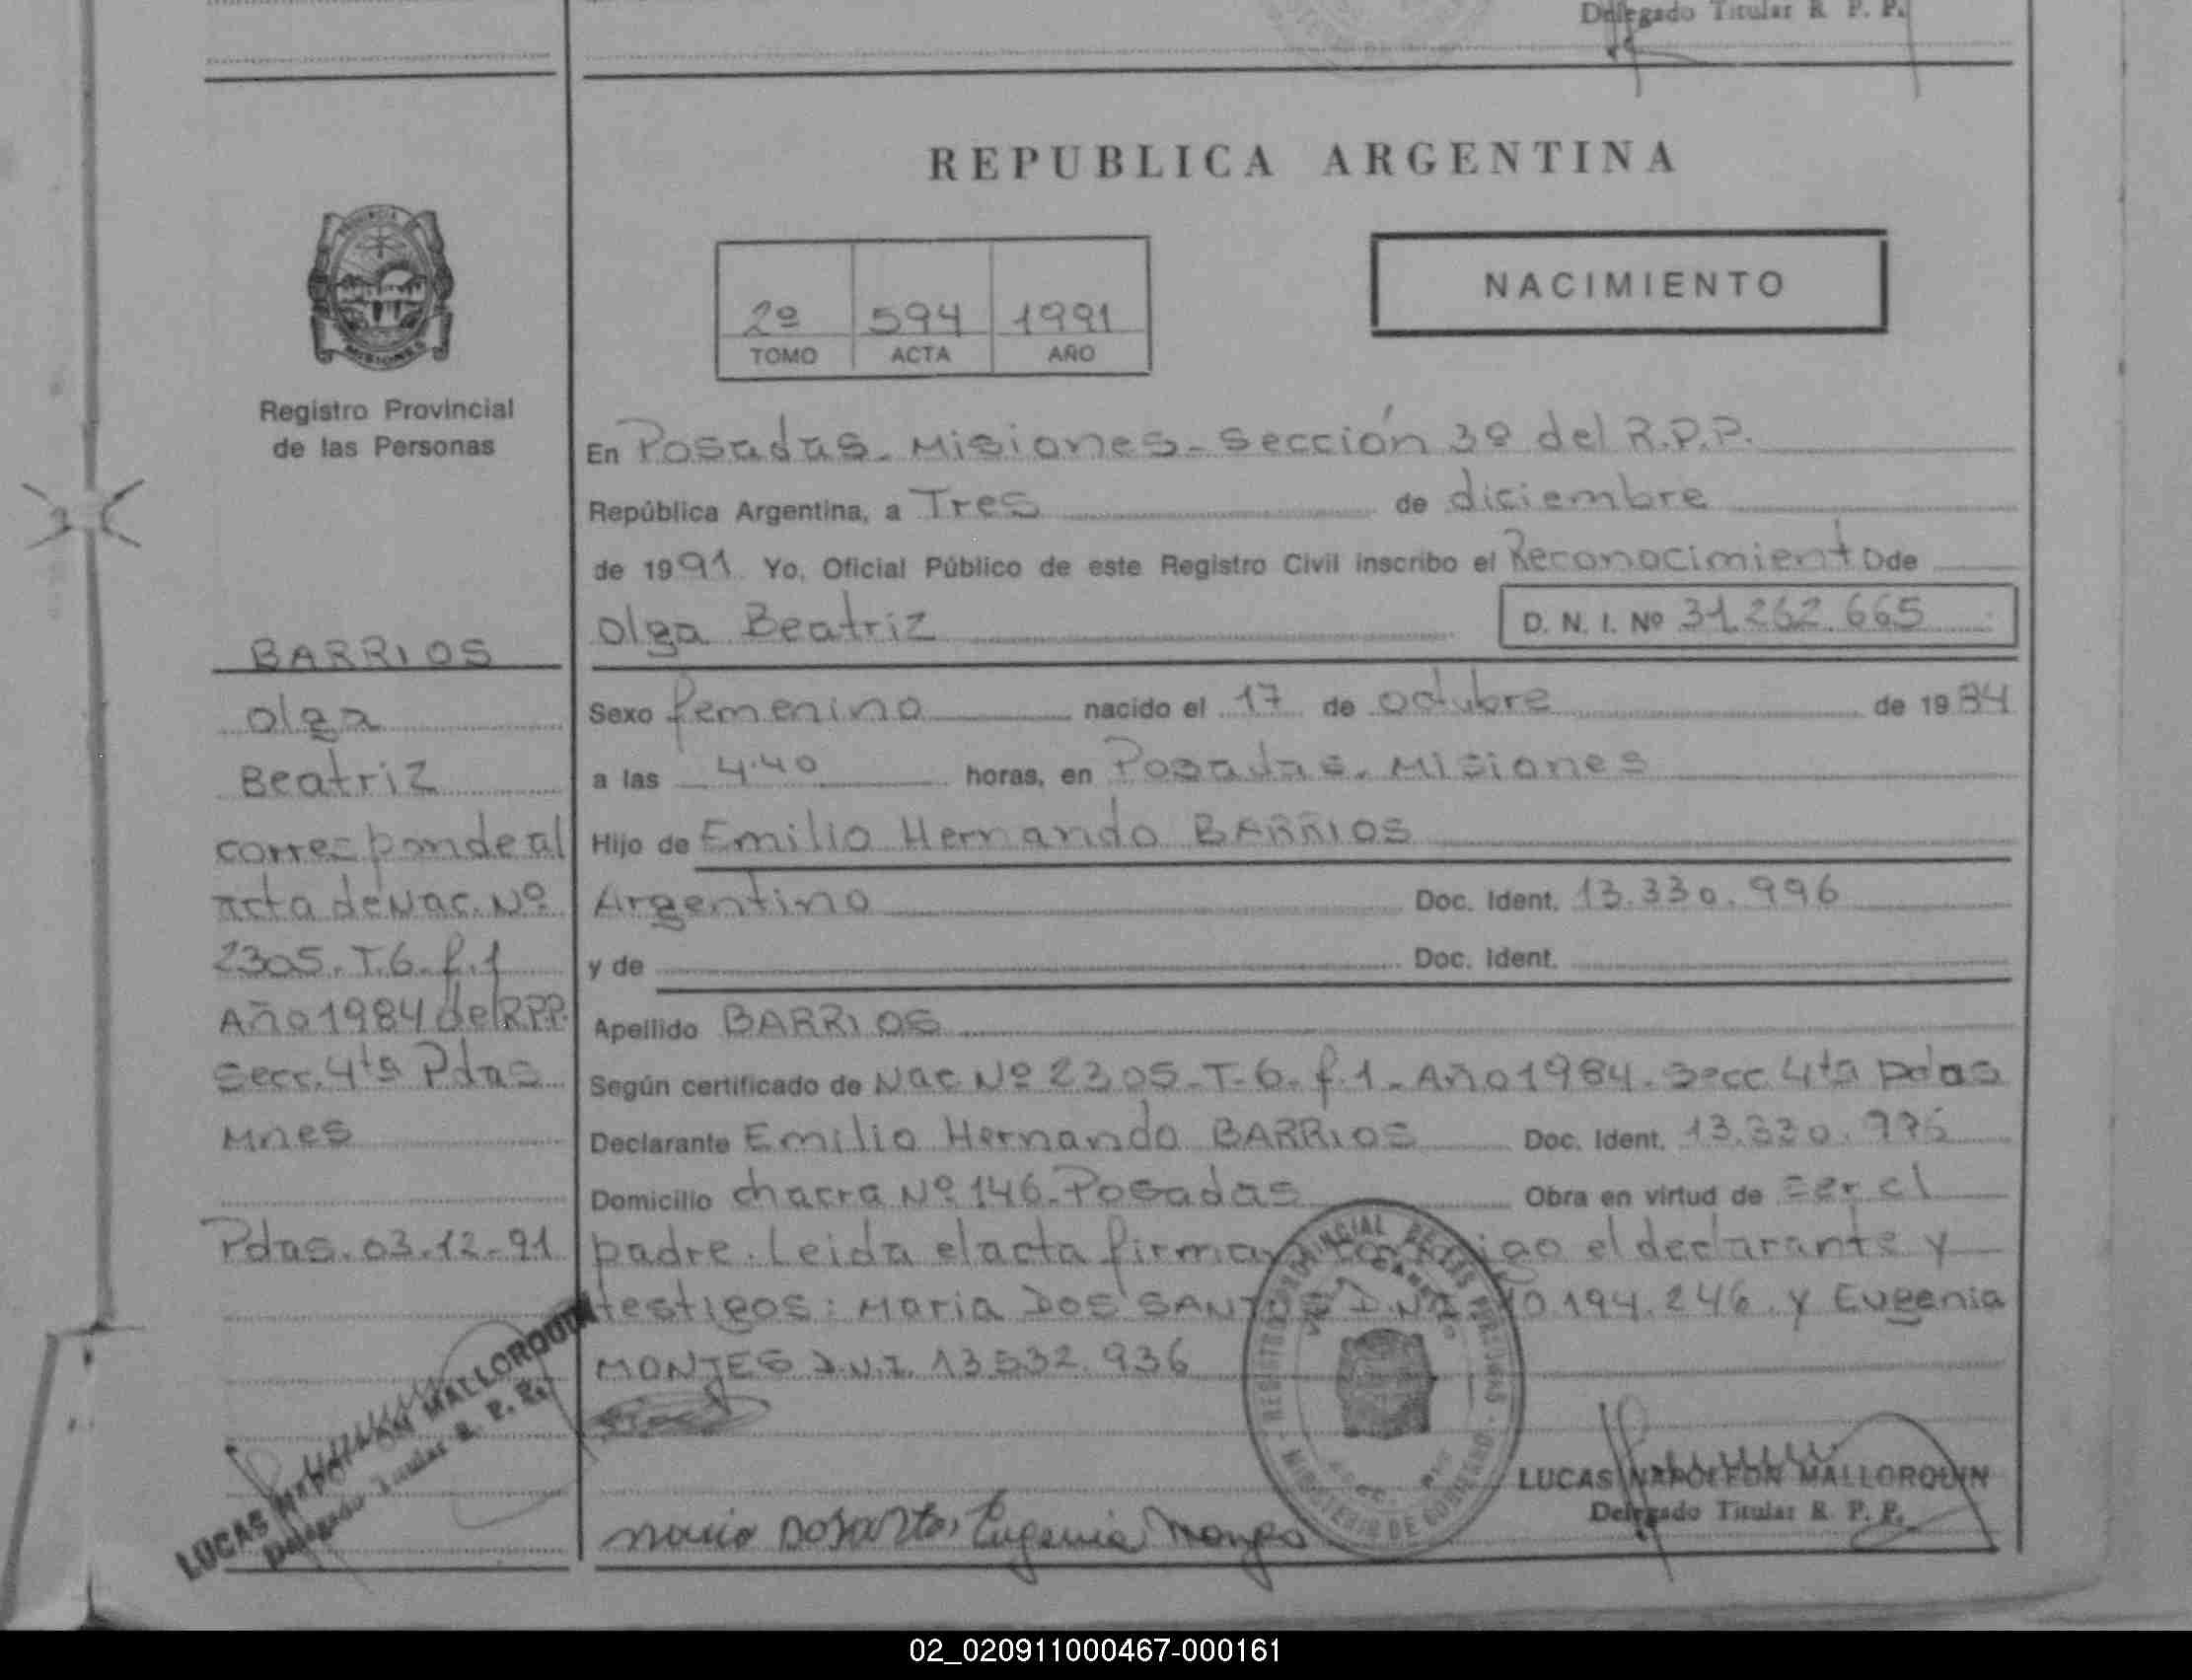 Delegado Titular R. P. P.
REPUBLICA ARGENTINA
PROVINCIA
MISIONES
Registro Provincial
de las Personas
2º 594 1991
TOMO ACTA AÑO
NACIMIENTO
En Posadas. Misiones - Sección 3º del R.P.P.
República Argentina, a Tres de diciembre
de 1991 Yo, Oficial Público de este Registro Civil inscribo el Reconocimiento de
Olga Beatriz D. N. I. Nº 31.262.665
Sexo femenino nacido el 17 de octubre de 1984
a las 4.40 horas, en Posadas. Misiones
Hijo de Emilio Hernando BARRIOS
Argentino Doc. Ident. 13.330.996
y de Doc. Ident.
Apellido BARRIOS
Según certificado de Nac Nº 2305 - T-6- f.1 - Año 1984. Secc 4ta pdas
Declarante Emilio Hernando BARRIOS Doc. Ident. 13.330.996
Domicilio chacra Nº 146. Posadas Obra en virtud de ser el
padre. Leida el acta firman el declarante y
testigos: Maria DOS SANTOS D.N.I. 194.246. y Eugenia
MONJES D.N.I. 13532.936
BARRIOS
Olga
Beatriz
corresponde al
acta de Nac. Nº
2305. T.6. f.1
Año 1984 del R.P.P.
Secc. 4ta Pdas
Mnes
Pdas. 03.12-91
LUCAS NAPOLEON MALLORQUIN
Delegado Titular R. P. P.
REGISTRO PROVINCIAL DE LAS PERSONAS - MINISTERIO DE GOBIERNO
LUCAS NAPOLEON MALLORQUIN
Delegado Titular R. P. P.
Eugenia
02_020911000467-000161